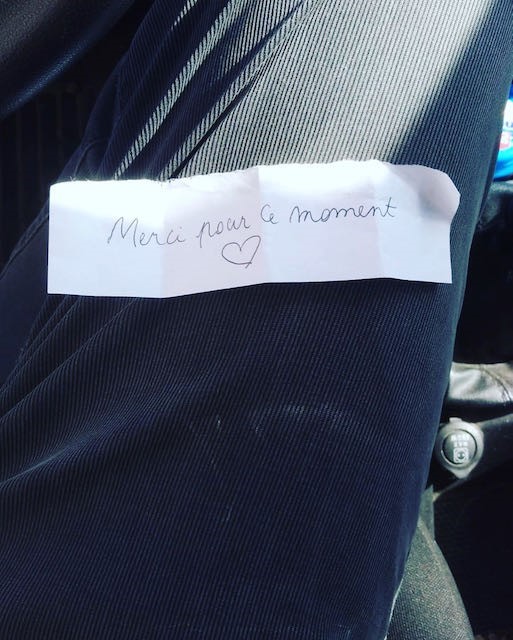 Merci pour ce moment